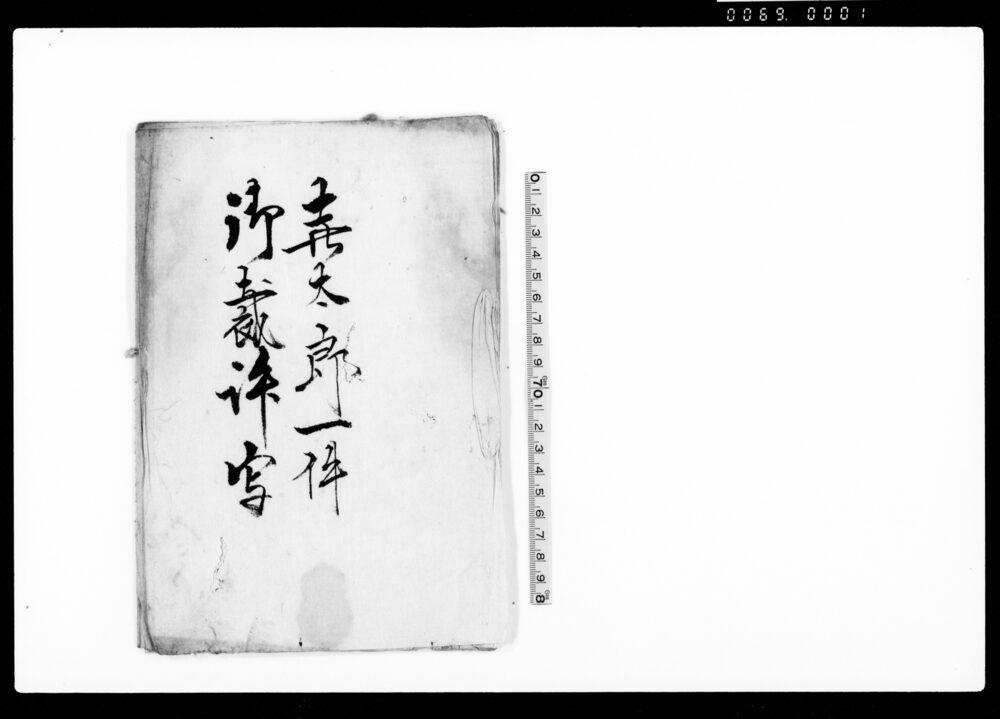 0069. 0001
喜太郎一件
御裁許写
0 1 2 3 4 5 6 7 8 9 10 1 2 3 4 5 6 7 8 9